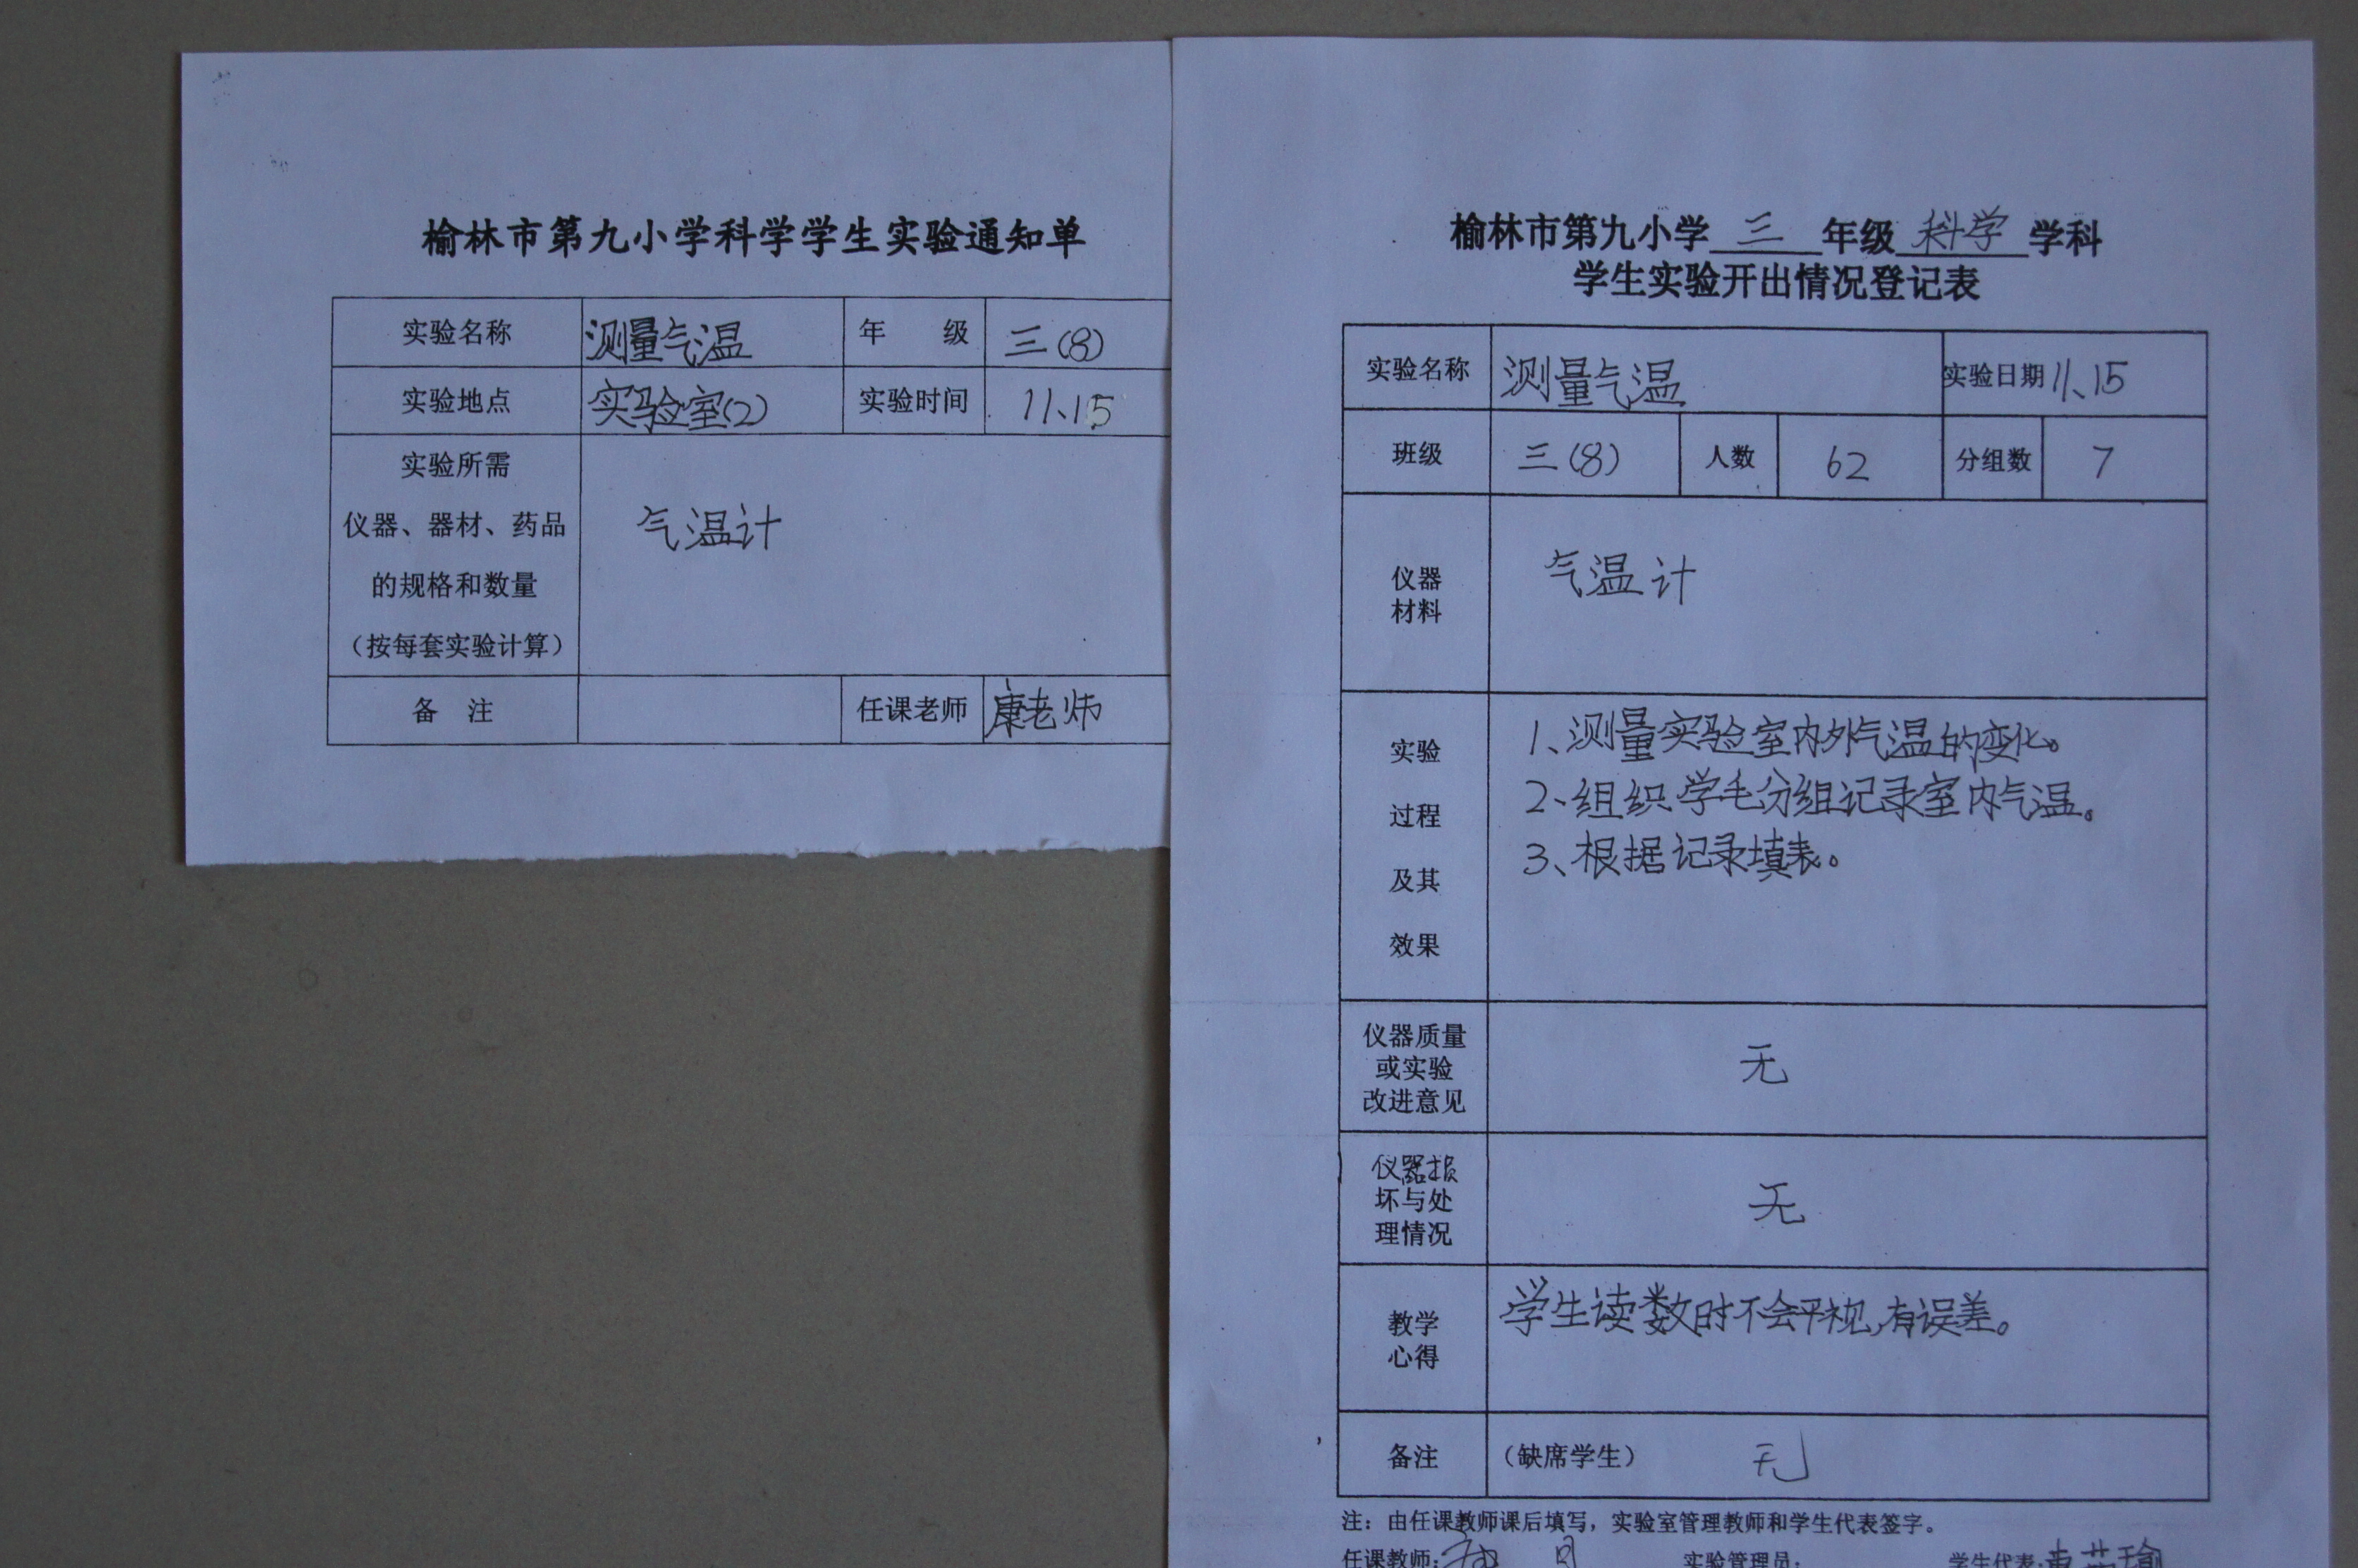 榆林市第九小学科学学生实验通知单
实验名称 测量气温 年 级 三(8)
实验地点 实验室(2) 实验时间 11.15
实验所需
仪器、器材、药品
的规格和数量
(按每套实验计算)
气温计
备 注 任课老师 康老师
榆林市第九小学 三 年级 科学 学科
学生实验开出情况登记表
实验名称 测量气温 实验日期 11、15
班级 三(8) 人数 62 分组数 7
仪器
材料
气温计
实验
过程
及其
效果
1、测量实验室内外气温的变化。
2、组织学生分组记录室内气温。
3、根据记录填表。
仪器质量
或实验
改进意见
无
仪器损
坏与处
理情况
无
教学
心得
学生读数时不会平视,有误差。
备注 (缺席学生) 无
注:由任课教师课后填写,实验室管理教师和学生代表签字。
任课教师: 实验管理员: 学生代表: